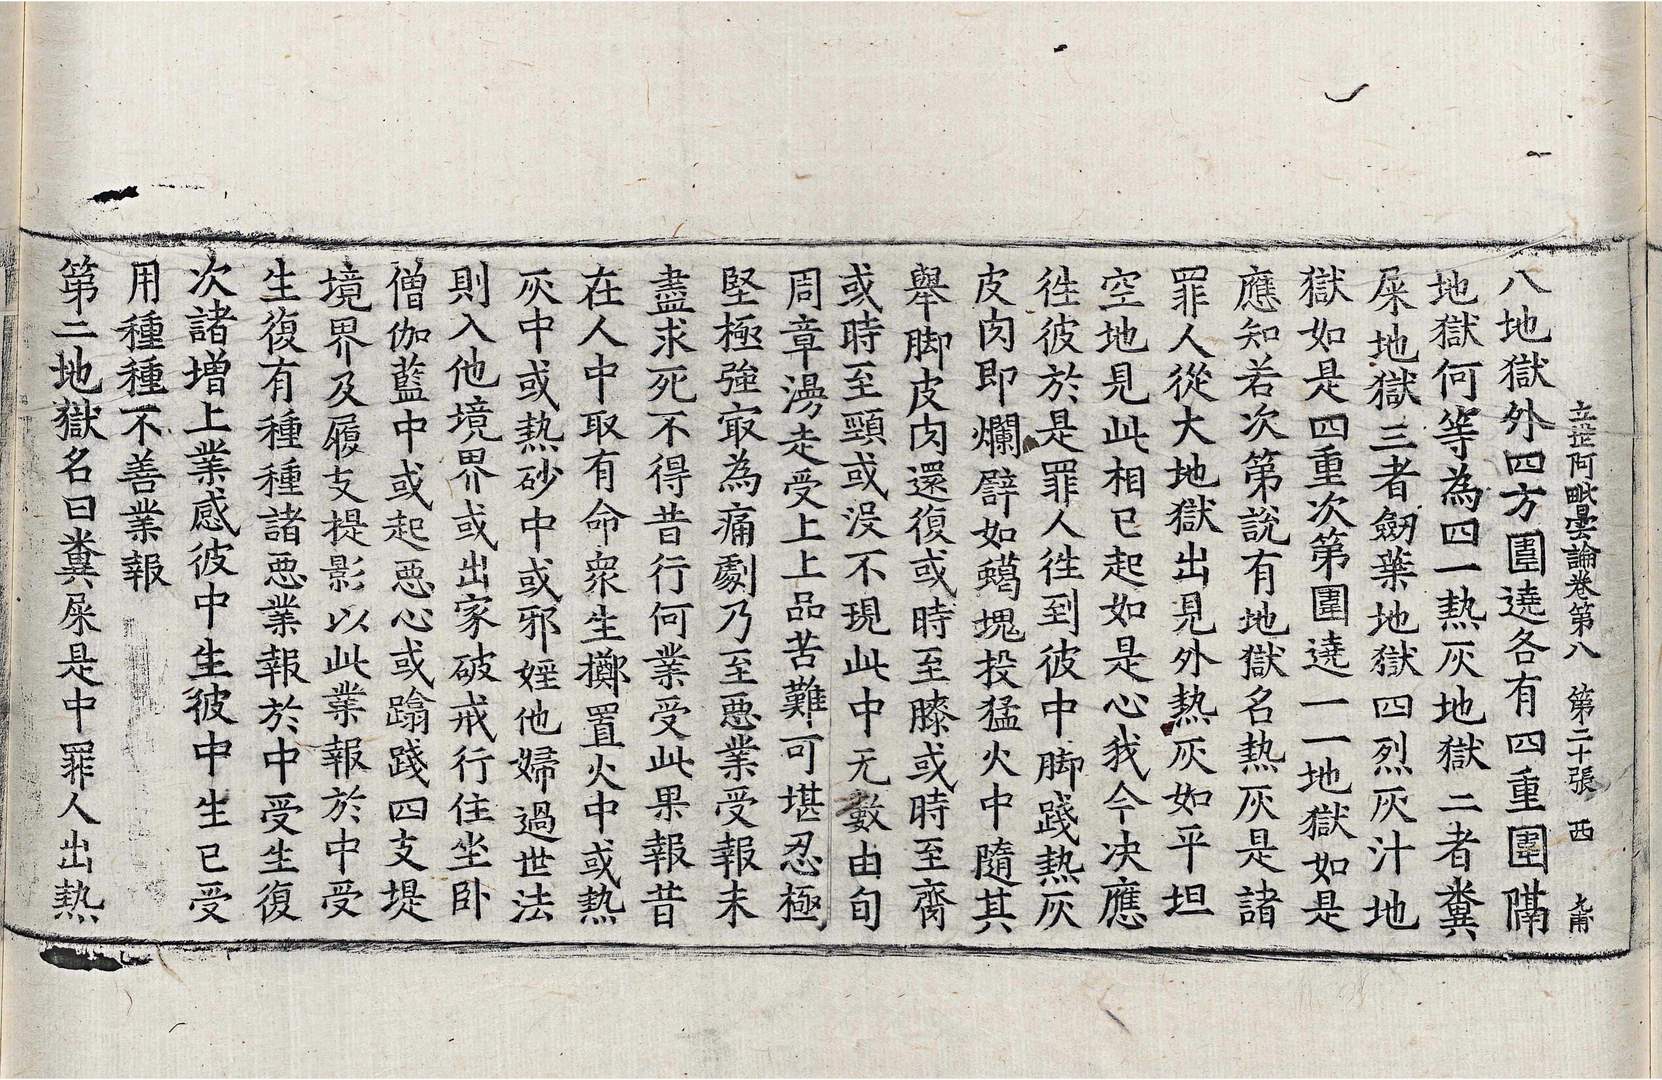 立世阿毗曇論卷第八 第二十張 西 九甫
八地獄外四方圍遶各有四重園隔
地獄何等為四一熱灰地獄二者糞
屎地獄三者劒葉地獄四烈灰汁地
獄如是四重次第圍遶一一地獄如是
應知若次第說有地獄名熱灰是諸
罪人從大地獄出見外熱灰如平坦
空地見此相已起如是心我今決應
徃彼於是罪人徃到彼中脚踐熱灰
皮肉即爛譬如蠟塊投猛火中隨其
舉脚皮肉還復或時至膝或時至齊
或時至頸或沒不現此中无數由旬
周章漫走受上上品苦難可堪忍極
堅極強㝡為痛劇乃至惡業受報未
盡求死不得昔行何業受此果報昔
在人中取有命衆生擲置火中或熱
灰中或熱砂中或邪婬他婦過世法
則入他境界或出家破戒行住坐卧
僧伽藍中或起惡心或蹹踐四支堤
境界及履支提影以此業報於中受
生復有種種諸惡業報於中受生復
次諸增上業感彼中生彼中生已受
用種種不善業報
第二地獄名曰糞屎是中罪人出熱